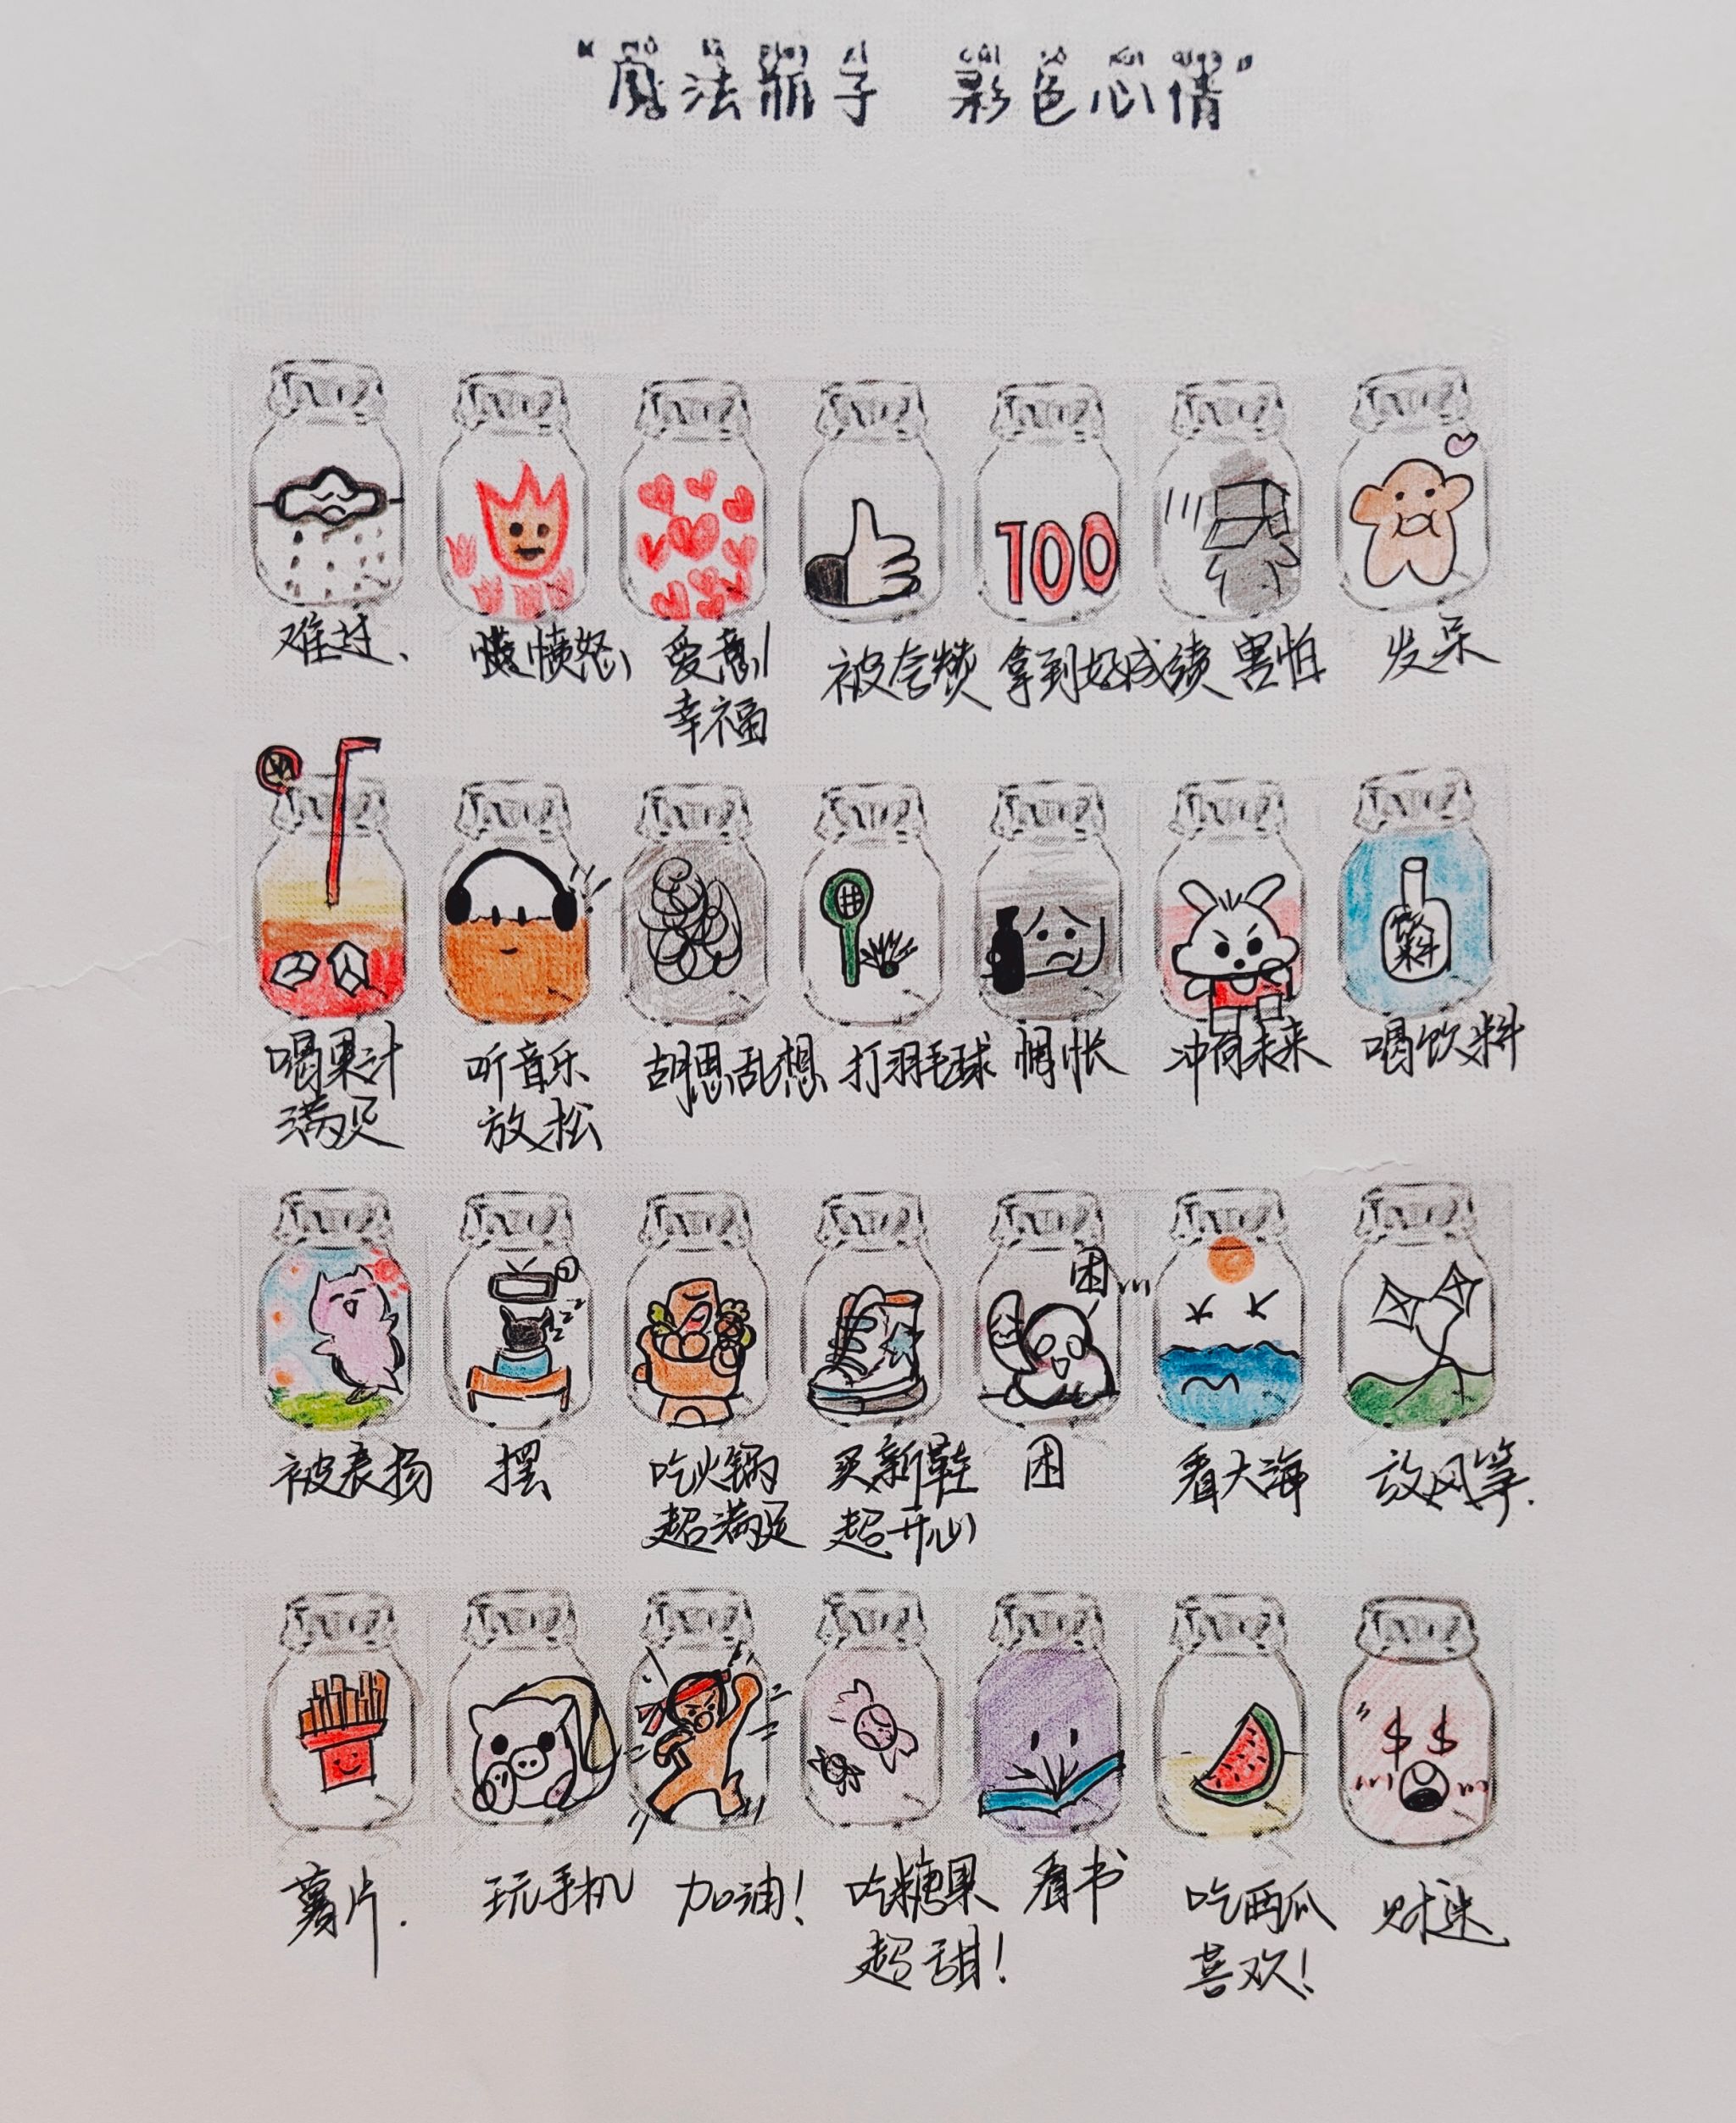 “魔法瓶子 彩色心情”
难过、
愤怒、
爱意！
幸福
被夸赞
100
拿到好成绩
害怕
发呆
喝果汁
满足
听音乐
放松
胡思乱想
打羽毛球
惆怅
冲向未来
饮料
喝饮料
被表扬
摆
吃火锅
超满足
买新鞋
超开心
困
困
看大海
放风筝.
薯片.
玩手机
加油！
吃糖果
超甜！
看书
吃西瓜
喜欢！
$ $
财迷